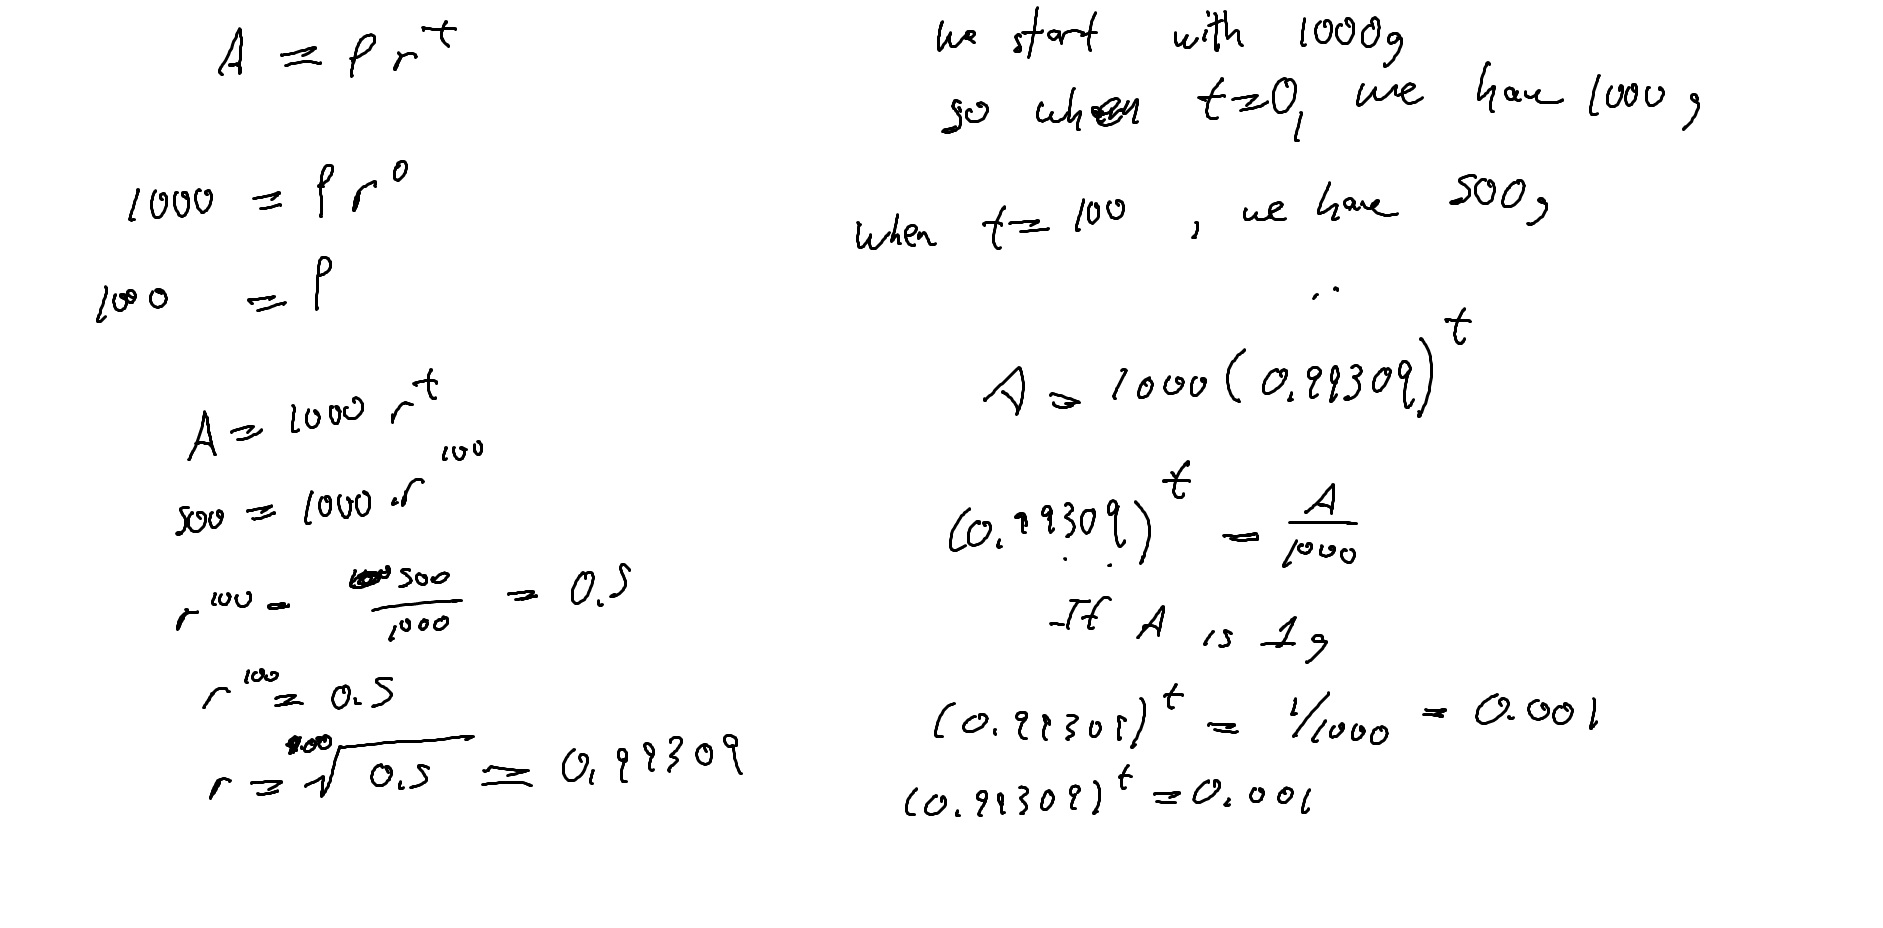 A = P r^t
1000 = P r^0
1000 = P
A = 1000 r^t
500 = 1000 . r^100
r^100 = 500/1000 = 0.5
r^100 = 0.5
r = ^100√0.5 = 0.99309
we start with 1000g
so when t=0, we have 1000g
when t = 100 , we have 500g
A = 1000 (0.99309)^t
(0.99309)^t = A/1000
If A is 1g
(0.99309)^t = 1/1000 = 0.001
(0.99309)^t = 0.001